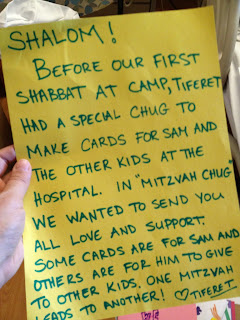 SHALOM!
BEFORE OUR FIRST
SHABBAT AT CAMP, TIFERET
HAD A SPECIAL CHUG TO
MAKE CARDS FOR SAM AND
THE OTHER KIDS AT THE
HOSPITAL. IN "MITZVAH CHUG"
WE WANTED TO SEND YOU
ALL LOVE AND SUPPORT.
SOME CARDS ARE FOR SAM AND
OTHERS ARE FOR HIM TO GIVE
TO OTHER KIDS. ONE MITZVAH
LEADS TO ANOTHER! ♡ TIFERET